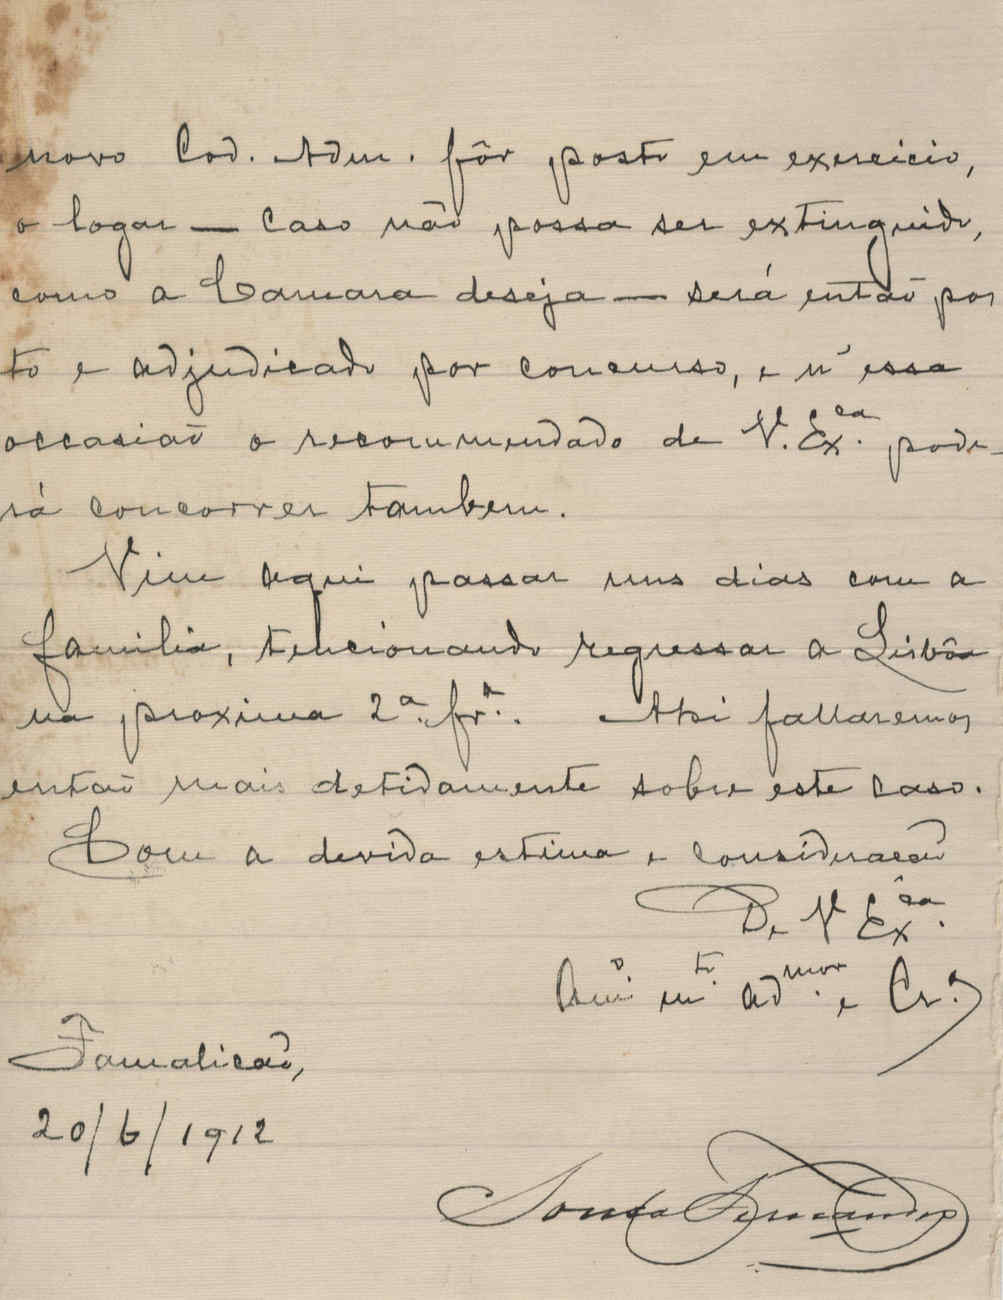 novo Cod. Adm. fôr posto em exercicio,
o logar — caso não possa ser extinguido,
como a Camara deseja — será então pos
to e adjudicado por concurso, e n'essa
occasião o recommendado de V. Ex.ca pode-
rá concorrer tambem.
Vim aqui passar uns dias com a
familia, tencionando regressar a Lisbôa
na proxima 2.ª fr.ª. Ahi fallaremos
então mais detidamente sobre este caso.
Com a devida estima e consideração
De V Ex.cia
Am.o m.to ad.mor e Cr.o
Famalicão,
20/6/1912
Sousa Fernandes